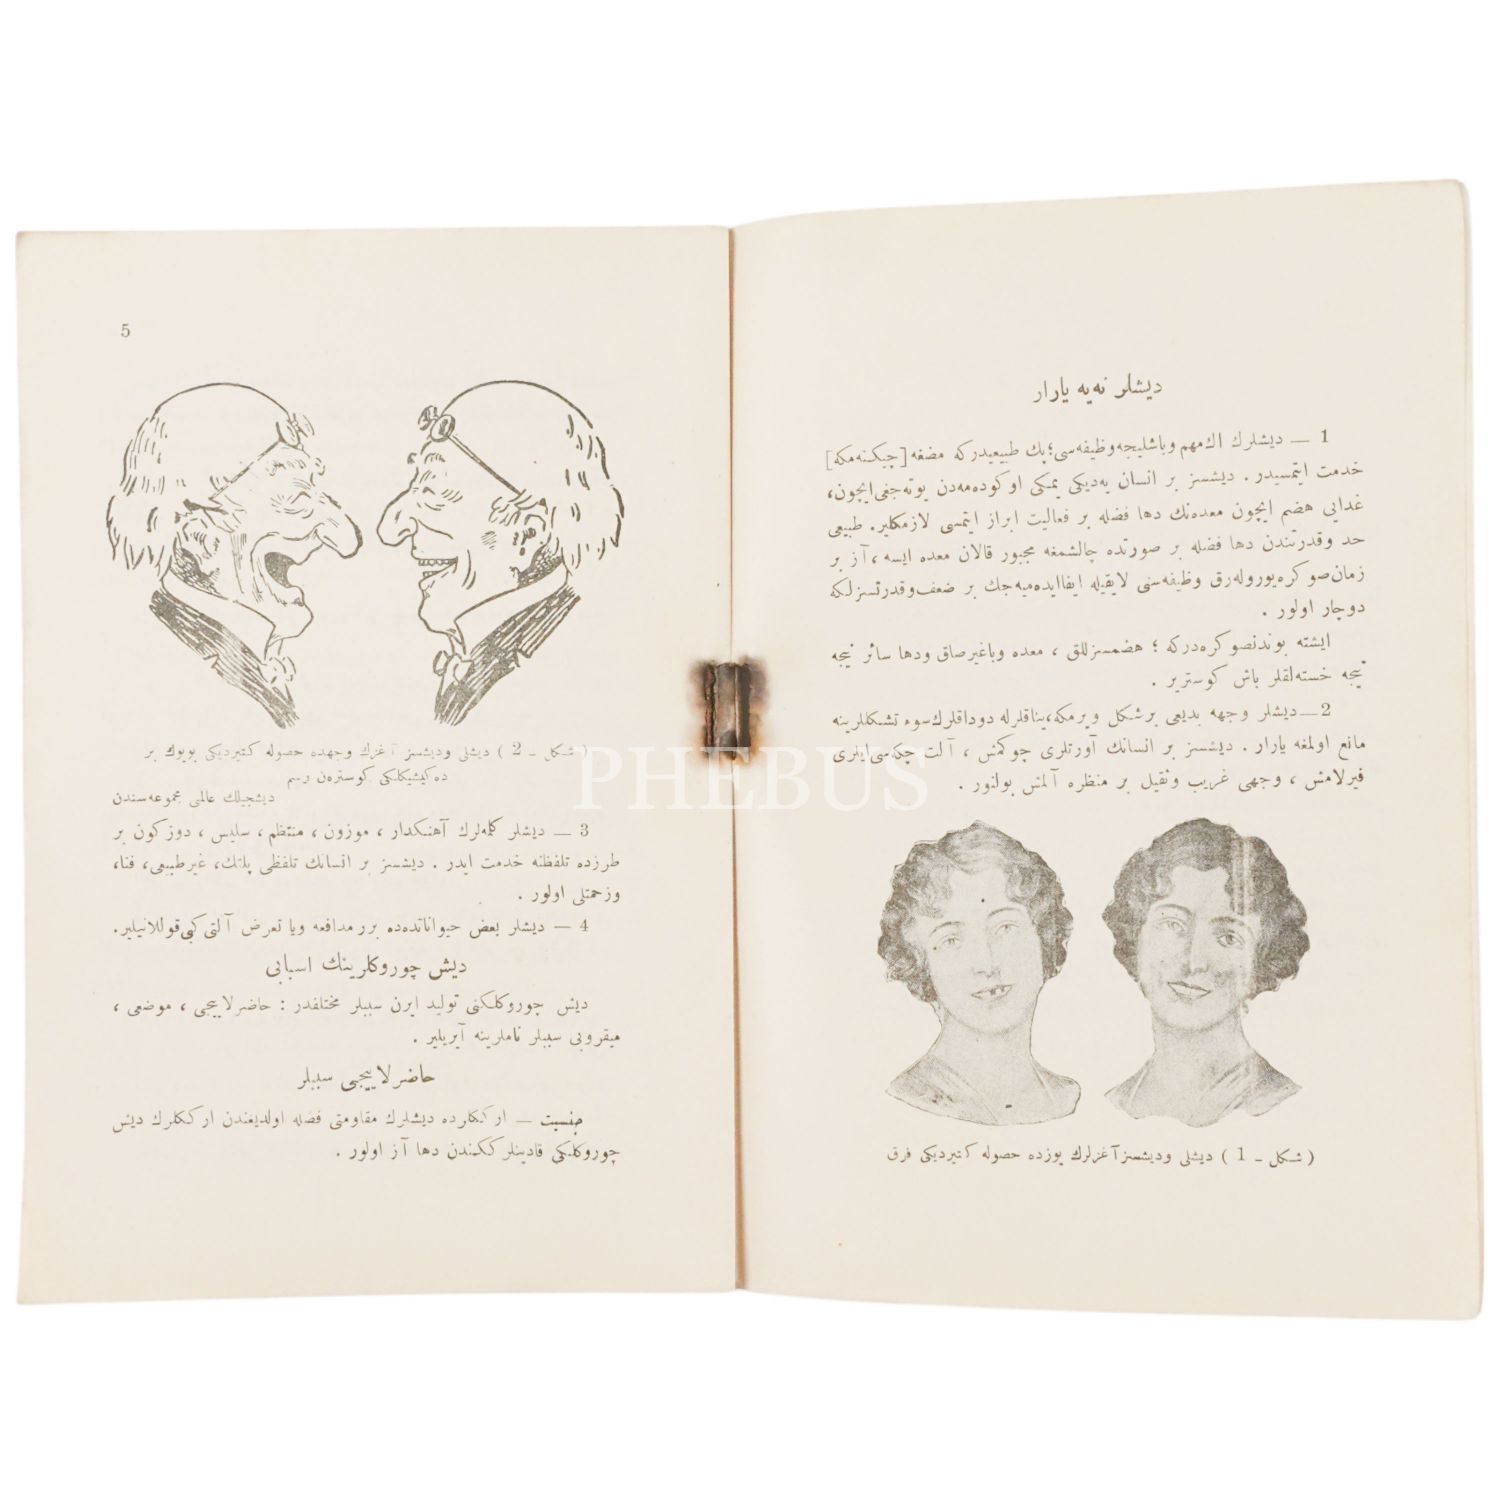 ديشلر نه‌يه يارار
1 — ديشلرك اك مهم وباشليجه وظيفه‌سى؛ پك طبيعيدركه مضغه [چيكنه‌مكه]
خدمت ايتمسيدر . ديشسز بر انسان يه‌ديكى يمكى اوكوده‌مه‌دن يوته‌جغى ايچون،
غدايى هضم ايچون معده‌نك دها فضله بر فعاليت ابراز ايتمسى لازمكلير. طبيعى
حد وقدرتندن دها فضله بر صورتده چالشمغه مجبور قالان معده ايسه ، آز بر
زمان صوكره يوروله‌رق وظيفه‌سنى لايقيله ايفا ايده‌ميه‌جك بر ضعف وقدرتسزلكه
دوچار اولور .
ايشته بوندنصوكره‌دركه ؛ هضمسزللق ، معده وباغيرصاق ودها سائر نيجه
نيجه خسته‌لقلر باش كوسترير .
2 — ديشلر وجهه بديعى بر شكل ويرمكه، يناقلرله دوداقلرك سوء تشكللرينه
مانع اولمغه يارار . ديشسز بر انسانك آورتلرى چوكمش ، آلت چكه‌سى ايلرى
فيرلامش ، وجهى غريب وثقيل بر منظره آلمش بولنور .
( شكل ـ 1 ) ديشلى وديشسز آغزلرك يوزده حصوله كتيرديكى فرق
5
( شكل ـ 2 ) ديشلى وديشسز آغزك وجهده حصوله كتيرديكى بويوك بر
ده‌كيشيكلكى كوسترن رسم
ديشجيلك عالمى مجموعه‌سندن
3 — ديشلر كلمه‌لرك آهنكدار ، موزون ، منتظم ، سليس ، دوزكون بر
طرزده تلفظنه خدمت ايدر . ديشسز بر انسانك تلفظى پلتك، غيرطبيعى، فنا،
وزحمتلى اولور .
4 — ديشلر بعض حيواناتده‌ده برر مدافعه ويا تعرض آلتى كبى قوللانيلير.
ديش چوروكلرينك اسبابى
ديش چوروكلكنى توليد ايدن سببلر مختلفدر : حاضرلاييجى ، موضعى ،
ميقروبى سببلر ناملرينه آيريلير .
حاضرلاييجى سببلر
جنسيت — اركلكلرده ديشلرك مقاومتى فضله اولديغندن اركلكلرك ديش
چوروكلكى قادينلركيندن دها آز اولور .
PHEBUS